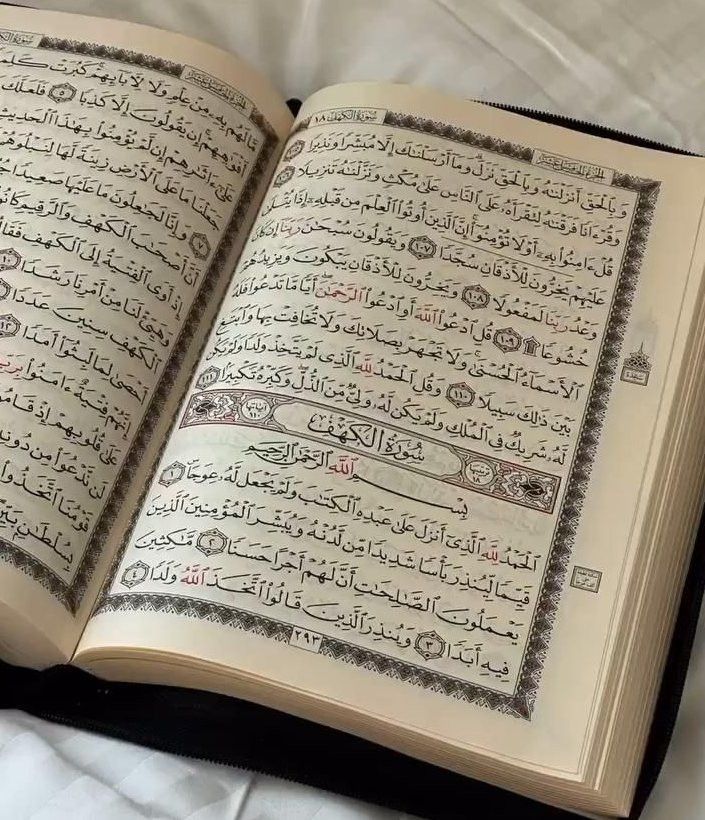 الجزء الخامس عشر
سُورَةُ الكَهْفِ ١٨
وَبِٱلْحَقِّ أَنزَلْنَٰهُ وَبِٱلْحَقِّ نَزَلَ وَمَآ أَرْسَلْنَٰكَ إِلَّا مُبَشِّرًا وَنَذِيرًا ١٠٥
وَقُرْءَانًا فَرَقْنَٰهُ لِتَقْرَأَهُۥ عَلَى ٱلنَّاسِ عَلَىٰ مُكْثٍ وَنَزَّلْنَٰهُ تَنزِيلًا ١٠٦
قُلْ ءَامِنُوا۟ بِهِۦٓ أَوْ لَا تُؤْمِنُوٓا۟ إِنَّ ٱلَّذِينَ أُوتُوا۟ ٱلْعِلْمَ مِن قَبْلِهِۦٓ إِذَا يُتْلَىٰ
عَلَيْهِمْ يَخِرُّونَ لِلْأَذْقَانِ سُجَّدًا ١٠٧ وَيَقُولُونَ سُبْحَٰنَ رَبِّنَآ إِن كَانَ
وَعْدُ رَبِّنَا لَمَفْعُولًا ١٠٨ وَيَخِرُّونَ لِلْأَذْقَانِ يَبْكُونَ وَيَزِيدُهُمْ
خُشُوعًا ۩ ١٠٩ قُلِ ٱدْعُوا۟ ٱللَّهَ أَوِ ٱدْعُوا۟ ٱلرَّحْمَٰنَ أَيًّا مَّا تَدْعُوا۟ فَلَهُ
ٱلْأَسْمَآءُ ٱلْحُسْنَىٰ وَلَا تَجْهَرْ بِصَلَاتِكَ وَلَا تُخَافِتْ بِهَا وَٱبْتَغِ
بَيْنَ ذَٰلِكَ سَبِيلًا ١١٠ وَقُلِ ٱلْحَمْدُ لِلَّهِ ٱلَّذِى لَمْ يَتَّخِذْ وَلَدًا وَلَمْ يَكُن
لَّهُۥ شَرِيكٌ فِى ٱلْمُلْكِ وَلَمْ يَكُن لَّهُۥ وَلِىٌّ مِّنَ ٱلذُّلِّ وَكَبِّرْهُ تَكْبِيرًا ١١١
ترتيبها ١٨ سُورَةُ الكَهْفِ آياتها ١١٠
بِسْمِ ٱللَّهِ ٱلرَّحْمَٰنِ ٱلرَّحِيمِ
ٱلْحَمْدُ لِلَّهِ ٱلَّذِىٓ أَنزَلَ عَلَىٰ عَبْدِهِ ٱلْكِتَٰبَ وَلَمْ يَجْعَل لَّهُۥ عِوَجَا ١
قَيِّمًا لِّيُنذِرَ بَأْسًا شَدِيدًا مِّن لَّدُنْهُ وَيُبَشِّرَ ٱلْمُؤْمِنِينَ ٱلَّذِينَ
يَعْمَلُونَ ٱلصَّٰلِحَٰتِ أَنَّ لَهُمْ أَجْرًا حَسَنًا ٢ مَّٰكِثِينَ
فِيهِ أَبَدًا ٣ وَيُنذِرَ ٱلَّذِينَ قَالُوا۟ ٱتَّخَذَ ٱللَّهُ وَلَدًا ٤
٢٩٣
الجزء الخامس عشر
مَّا لَهُم بِهِۦ مِنْ عِلْمٍ وَلَا لِءَابَآئِهِمْ كَبُرَتْ
أَفْوَٰهِهِمْ إِن يَقُولُونَ إِلَّا كَذِبًا ٥ فَلَعَلَّكَ
عَلَىٰٓ ءَاثَٰرِهِمْ إِن لَّمْ يُؤْمِنُوا۟ بِهَٰذَا ٱلْحَدِيثِ
جَعَلْنَا مَا عَلَى ٱلْأَرْضِ زِينَةً لَّهَا لِنَبْلُوَهُمْ
٧ وَإِنَّا لَجَٰعِلُونَ مَا عَلَيْهَا صَعِيدًا
أَنَّ أَصْحَٰبَ ٱلْكَهْفِ وَٱلرَّقِيمِ كَانُوا۟
إِذْ أَوَى ٱلْفِتْيَةُ إِلَى ٱلْكَهْفِ
وَهَيِّئْ لَنَا مِنْ أَمْرِنَا رَشَدًا ١٠
ٱلْكَهْفِ سِنِينَ عَدَدًا
أَحْصَىٰ لِمَا لَبِثُوٓا۟ أَمَدًا ١٢
إِنَّهُمْ فِتْيَةٌ ءَامَنُوا۟
عَلَىٰ قُلُوبِهِمْ إِذْ قَامُوا۟
لَن نَّدْعُوَا۟ مِن دُونِهِ
قَوْمُنَا ٱتَّخَذُوا۟
بِسُلْطَٰنٍۭ